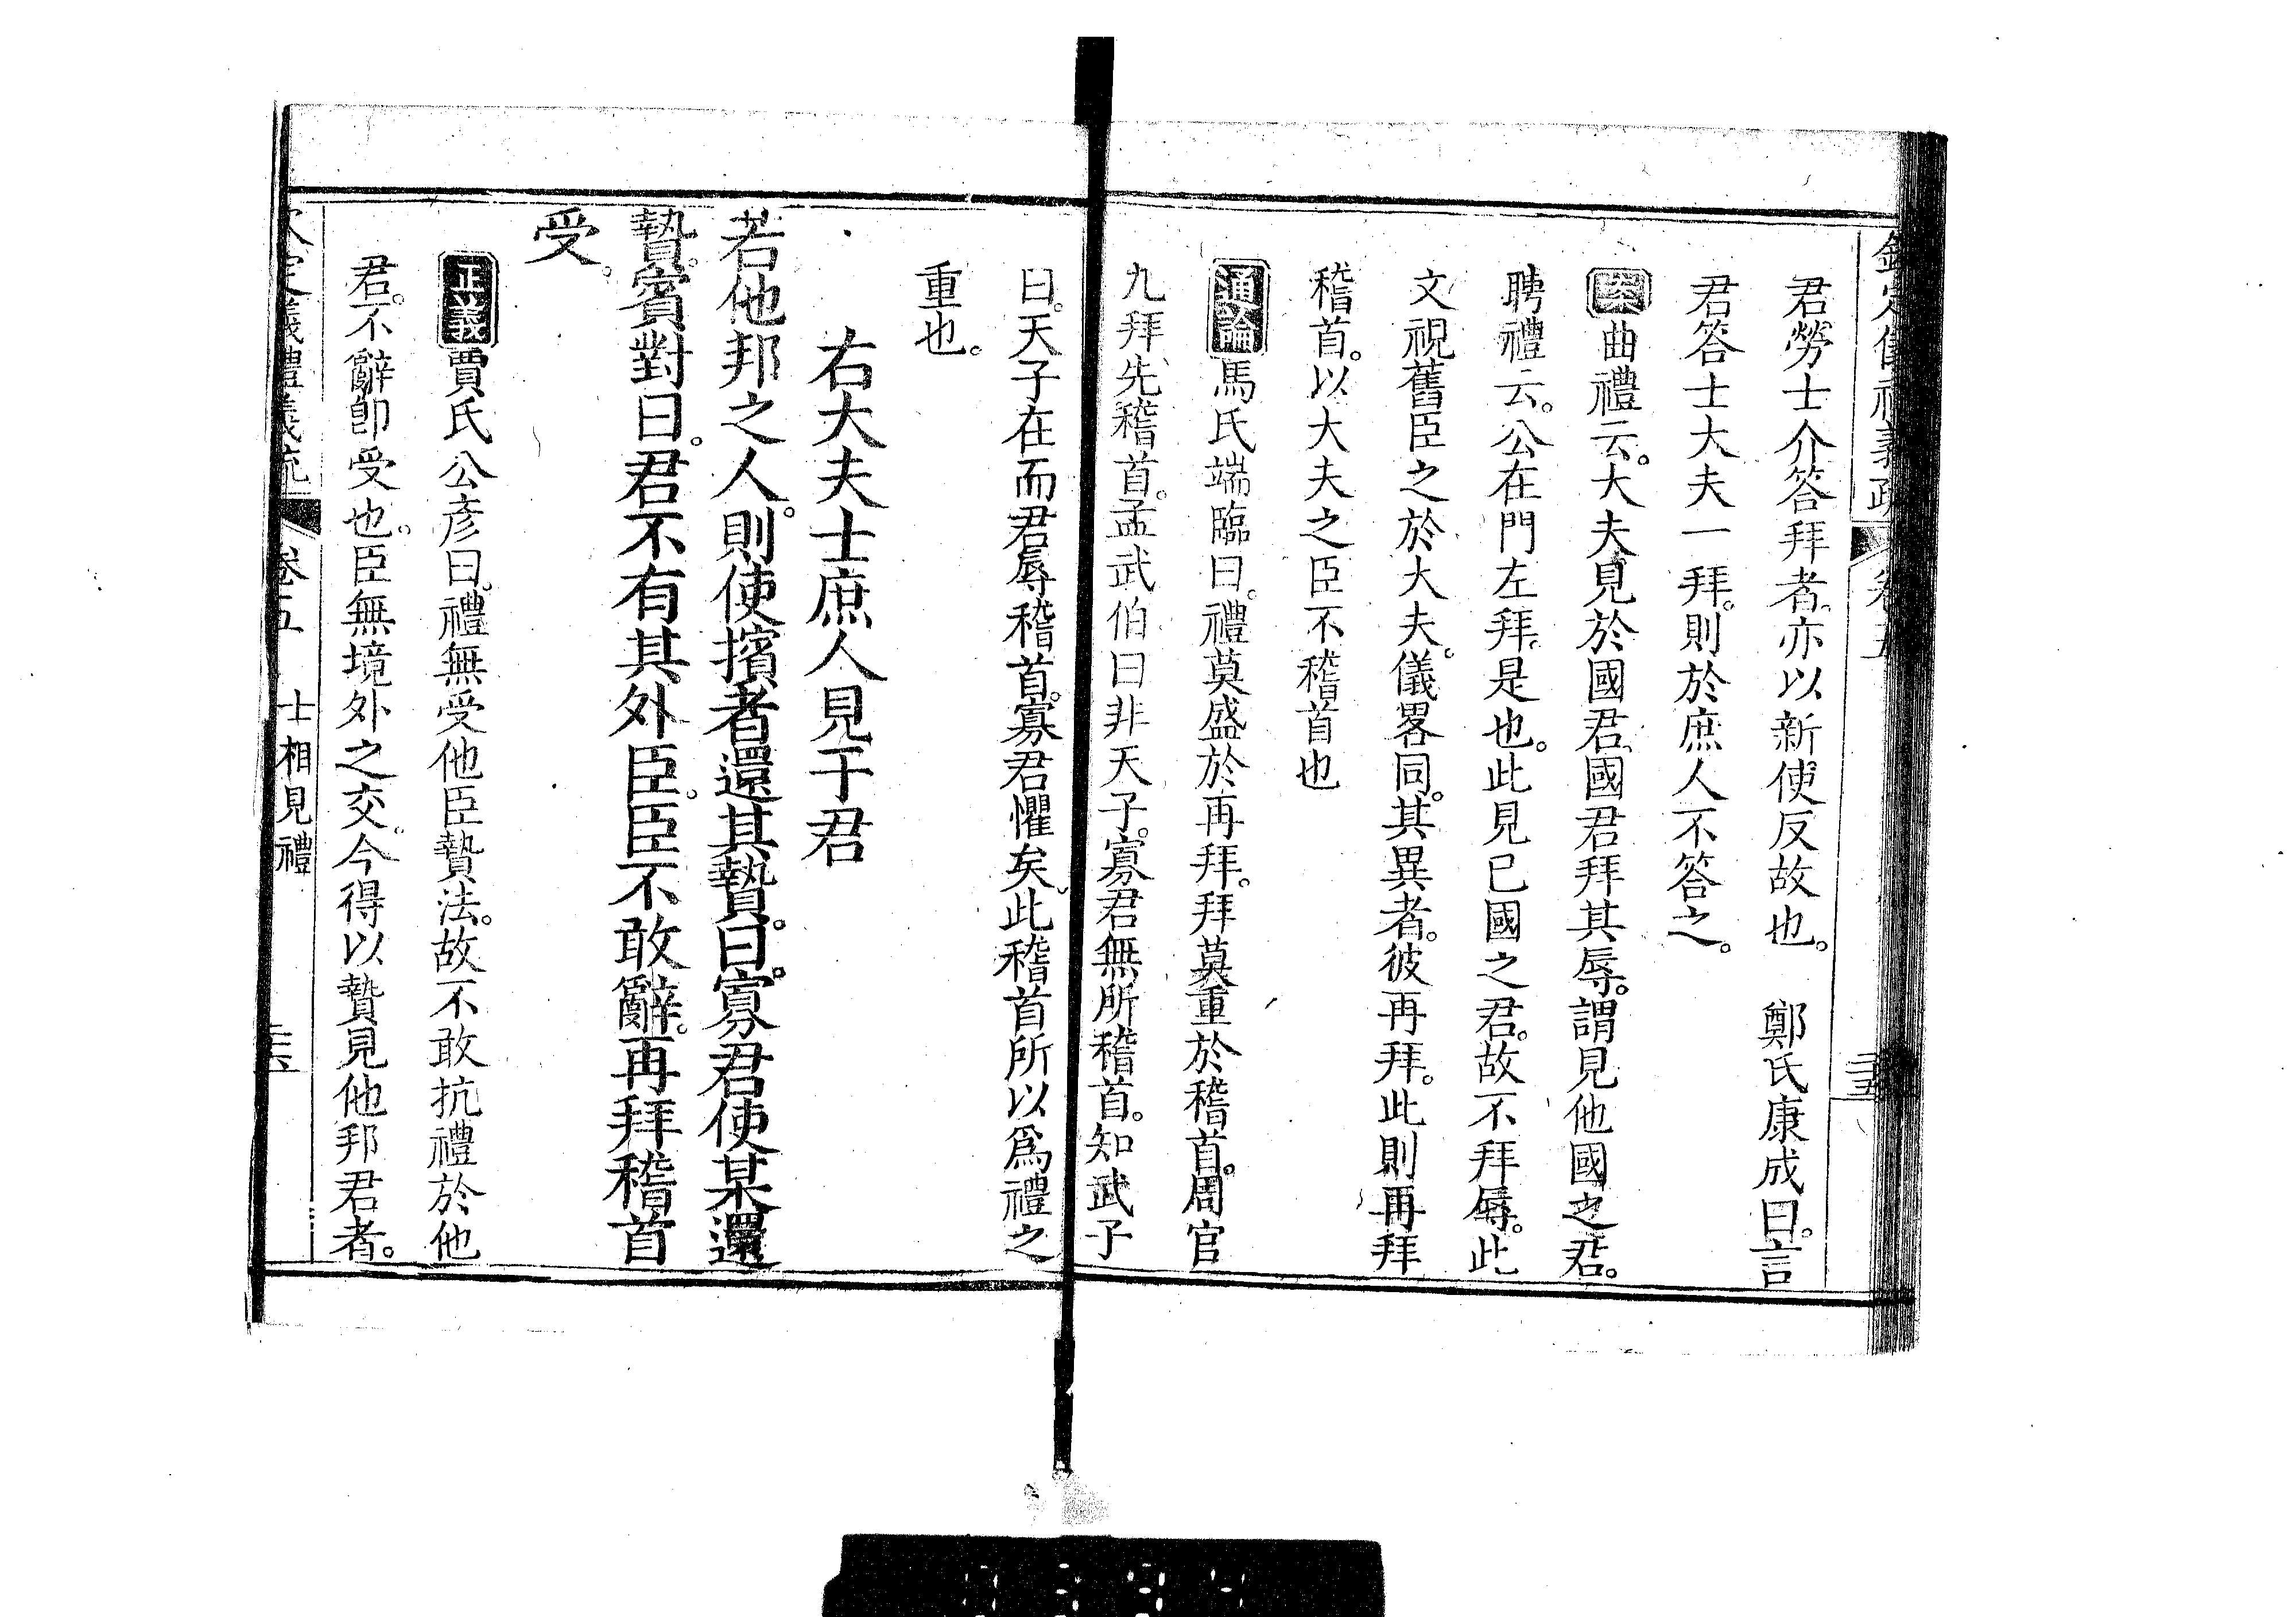 欽定儀禮義疏 卷五 三五
君勞士介答拜者亦以新使反故也。 鄭氏康成曰。言
君答士大夫一拜。則於庶人不答之。
案曲禮云。大夫見於國君、國君拜其辱。謂見他國之君。
聘禮云。公在門左拜。是也。此見已國之君。故不拜辱。此
文視舊臣之於大夫。儀畧同。其異者。彼再拜。此則再拜
稽首。以大夫之臣不稽首也
通論馬氏端臨曰。禮莫盛於再拜。拜莫重於稽首。周官
九拜、先稽首。孟武伯曰非天子。寡君無所稽首。知武子
曰。天子在而君辱稽首。寡君懼矣、此稽首所以爲禮之
重也。
右大夫士庶人見于君
若他邦之人。則使擯者還其贄。曰。寡君使某還
贄。賓對曰。君不有其外臣。臣不敢辭。再拜稽首
受。
正義賈氏公彥曰。禮無受他臣贄法。故不敢抗禮於他
君。不辭卽受也。臣無境外之交。今得以贄見他邦君者。
欽定儀禮義疏 卷五 士相見禮 三六